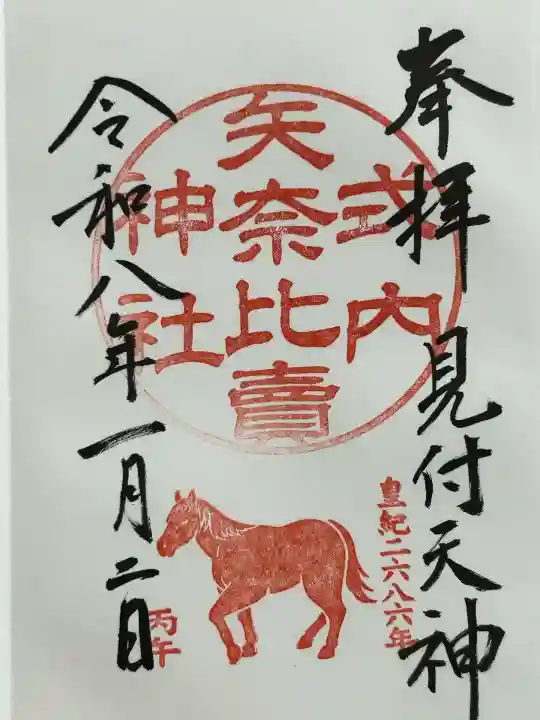 奉拝 見付天神
皇紀二六八六年
式内
矢奈比賣
神社
丙午
令和八年一月二日